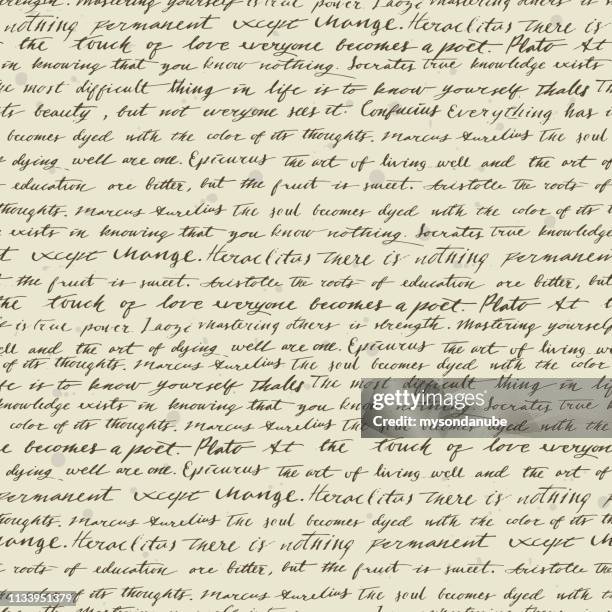 strength. Mastering yourself is true power. Laozi Mastering others is
nothing permanent except change. Heraclitus There is
the touch of love everyone becomes a poet. Plato At t
in knowing that you know nothing. Socrates True knowledge exists
e most difficult thing in life is to know yourself. Thalls The
ts beauty, but not everyone sees it. Confucius Everything has i
becomes dyed with the color of its thoughts. Marcus Aurelius The soul
dying well are one. Epicurus The art of living well and the art of
education are bitter, but the fruit is sweet. Aristotle The roots of
thoughts. Marcus Aurelius The soul becomes dyed with the color of its t
exists in knowing that you know nothing. Socrates True knowledge
t except change. Heraclitus There is nothing permanen
the fruit is sweet. Aristotle The roots of education are bitter, but
the touch of love everyone becomes a poet. Plato At t
is true power Laozi Mastering others is strength. Mastering yourself
ell and the art of dying well are one. Epicurus The art of living w
of its thoughts. Marcus Aurelius The soul becomes dyed with the color
fe is to know yourself Thalls The most difficult thing in lif
knowledge exists in knowing that you know nothing Socrates True
color of its thoughts. Marcus Aurelius The soul becomes dyed with the
e becomes a poet. Plato At the touch of love everyon
dying well are one. Epicurus The art of living well and the art of
ermanent except change. Heraclitus There is nothing p
oughts. Marcus Aurelius The soul becomes dyed with the color of its th
ange. Heraclitus There is nothing permanent except ch
roots of education are bitter, but the fruit is sweet. Aristotle The
of its thoughts. Marcus Aurelius The soul becomes dyed with the color
gettyimages
Credit: mysondanube
1133951379